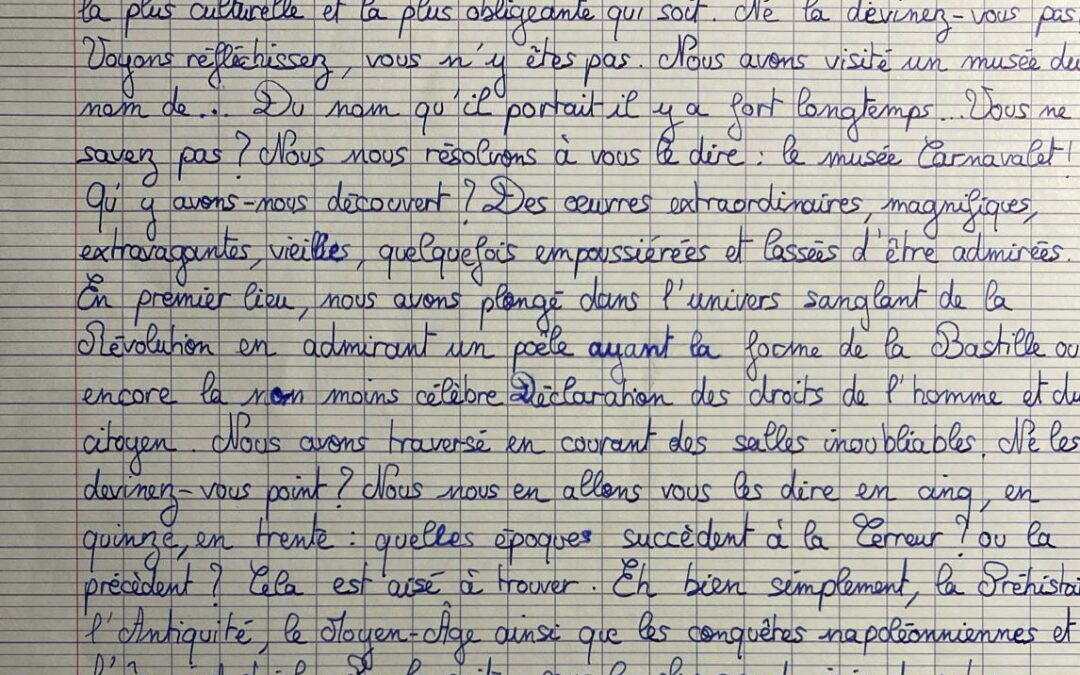 la plus culturelle et la plus obligeante qui soit. Ne la devinez-vous pas
Voyons réfléchissez, vous n'y êtes pas. Nous avons visité un musée du
nom de... Du nom qu'il portait il y a fort longtemps... Vous ne
savez pas ? Nous nous résolvons à vous le dire : le musée Carnavalet !
Qu'y avons-nous découvert ? Des œuvres extraordinaires, magnifiques,
extravagantes, vieilles, quelquefois empoussiérées et lassées d'être admirées.
En premier lieu, nous avons plongé dans l'univers sanglant de la
Révolution en admirant un poêle ayant la forme de la Bastille ou
encore la non moins célèbre Déclaration des droits de l'homme et du
citoyen. Nous avons traversé en courant des salles inoubliables. Ne les
devinez-vous point ? Nous nous en allons vous les dire en cinq, en
quinze, en trente : quelles époques succèdent à la Terreur ? ou la
précèdent ? Cela est aisé à trouver. Eh bien simplement, la Préhistoi
l'Antiquité, le Moyen-Âge ainsi que les conquêtes napoléonniennes et